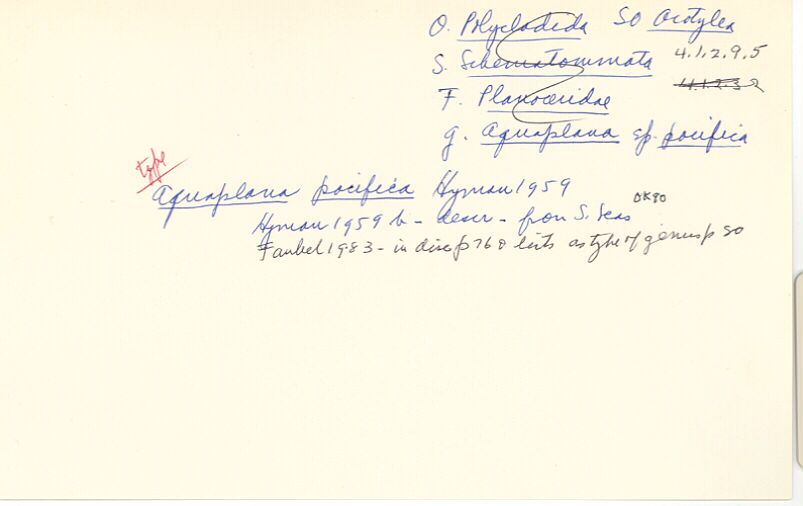 O. Polycladida SO Acotylea
S. Schematommata 4.1.2.9.5
4.1.2.3
F. Planoceridae
g. Aquaplana sp. pacifica
type
Aquaplana pacifica Hyman 1959
OK80
Hyman 1959 b - descr - from S. Seas
Faubel 1983 - in disc p 76 lists as type of genus p 80